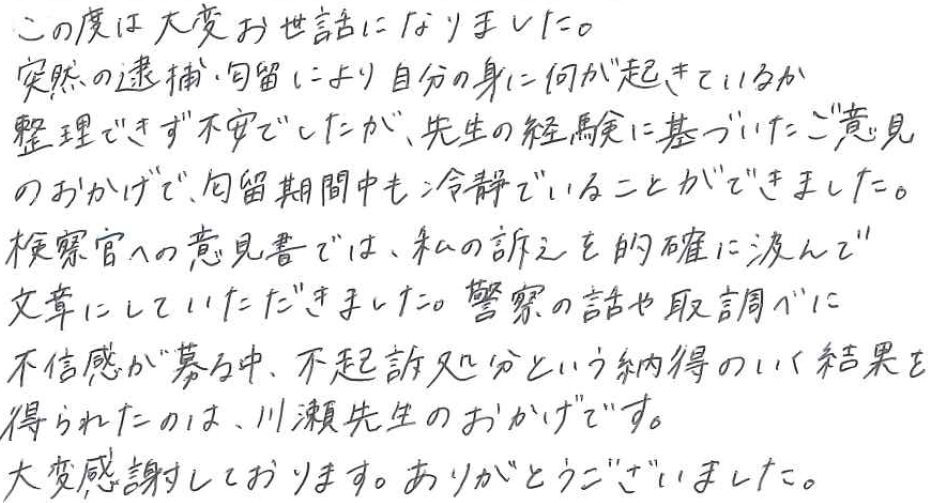 この度は大変お世話になりました。
突然の逮捕・勾留により自分の身に何が起きているか
整理できず不安でしたが、先生の経験に基づいたご意見
のおかげで、勾留期間中も冷静でいることができました。
検察官への意見書では、私の訴えを的確に汲んで
文章にしていただきました。警察の話や取調べに
不信感が募る中、不起訴処分という納得のいく結果を
得られたのは、川瀬先生のおかげです。
大変感謝しております。ありがとうございました。